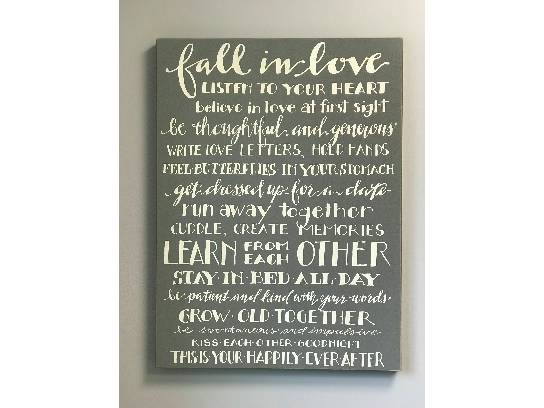 fall in love
LISTEN TO YOUR HEART
believe in love at first sight
be thoughtful and generous
WRITE LOVE LETTERS, HOLD HANDS
FEEL BUTTERFLIES IN YOUR STOMACH
get dressed up for a date
run away together
CUDDLE, CREATE MEMORIES
LEARN FROM EACH OTHER
STAY·IN·BED·ALL·DAY
be patient and kind with your words
GROW·OLD·TOGETHER
be spontaneous and impulsive
KISS·EACH·OTHER·GOODNIGHT
THIS·IS·YOUR·HAPPILY·EVER·AFTER